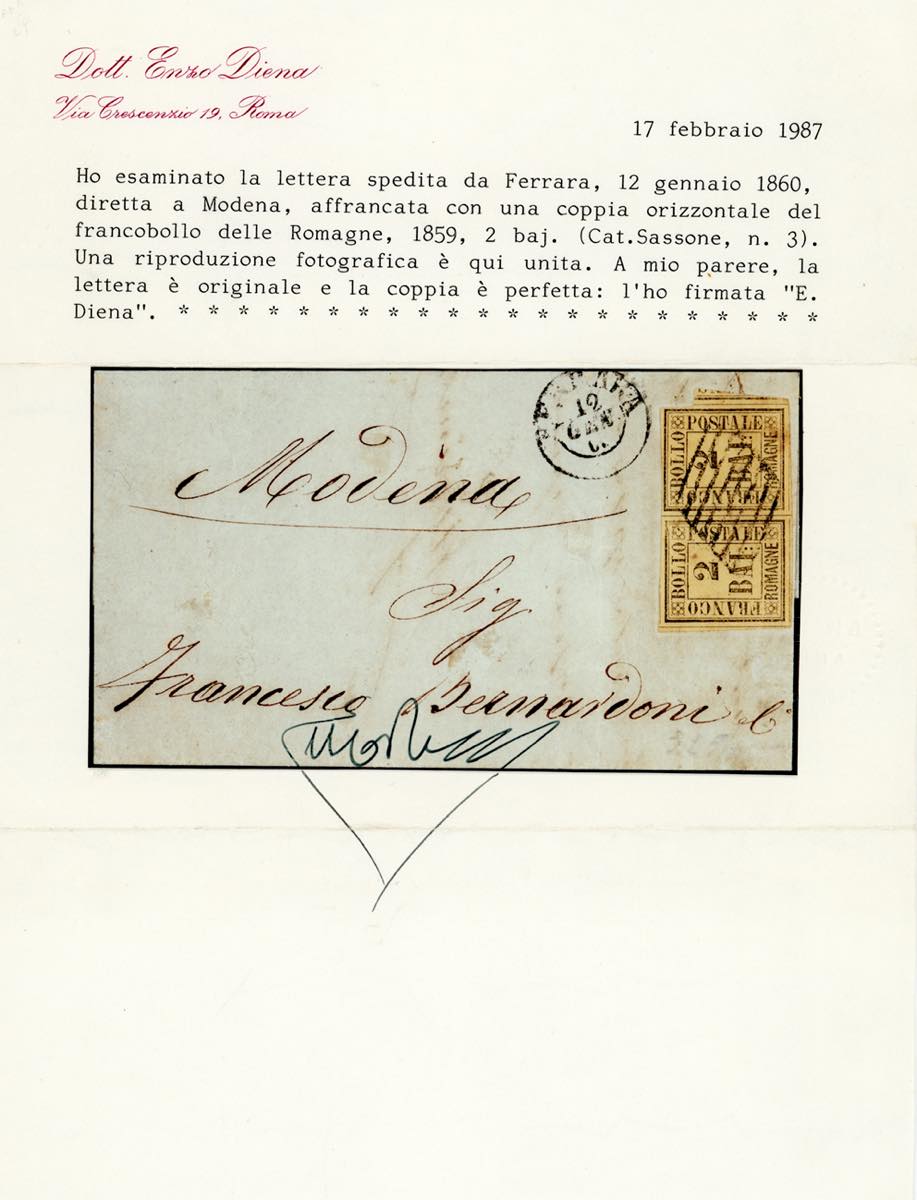 Dott. Enzo Diena
Via Crescenzio 19, Roma
17 febbraio 1987
Ho esaminato la lettera spedita da Ferrara, 12 gennaio 1860,
diretta a Modena, affrancata con una coppia orizzontale del
francobollo delle Romagne, 1859, 2 baj. (Cat.Sassone, n. 3).
Una riproduzione fotografica è qui unita. A mio parere, la
lettera è originale e la coppia è perfetta: l'ho firmata "E.
Diena". * * * * * * * * * * * * * * * * * * * * * *
FERRARA
12
GEN
Modena
Sig
Francesco Bernardoni
BOLLO
POSTALE
BAI:
ROMAGNE
FRANCO
BOLLO
POSTALE
2
BAI:
ROMAGNE
FRANCO